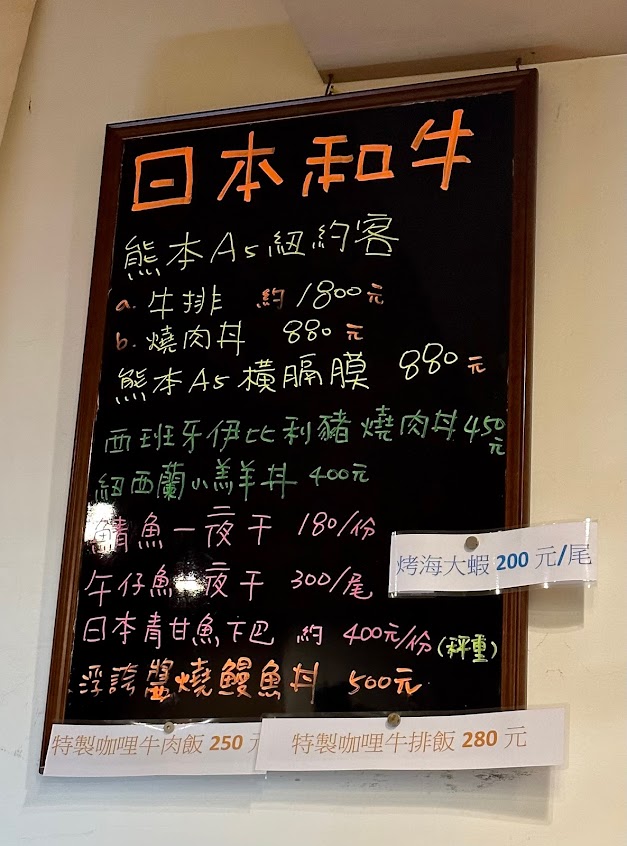 日本和牛
熊本A5紐約客
a. 牛排 約 1800元
b. 燒肉丼 880元
熊本A5橫膈膜 880元
西班牙伊比利豬燒肉丼450元
紐西蘭小羔羊丼 400元
鯖魚一夜干 180/份
午仔魚一夜干 300/尾
烤海大蝦 200 元/尾
日本青甘魚下巴 約 400元/份(秤重)
浮誇醬燒鰻魚丼 500元
特製咖哩牛肉飯 250 元
特製咖哩牛排飯 280 元